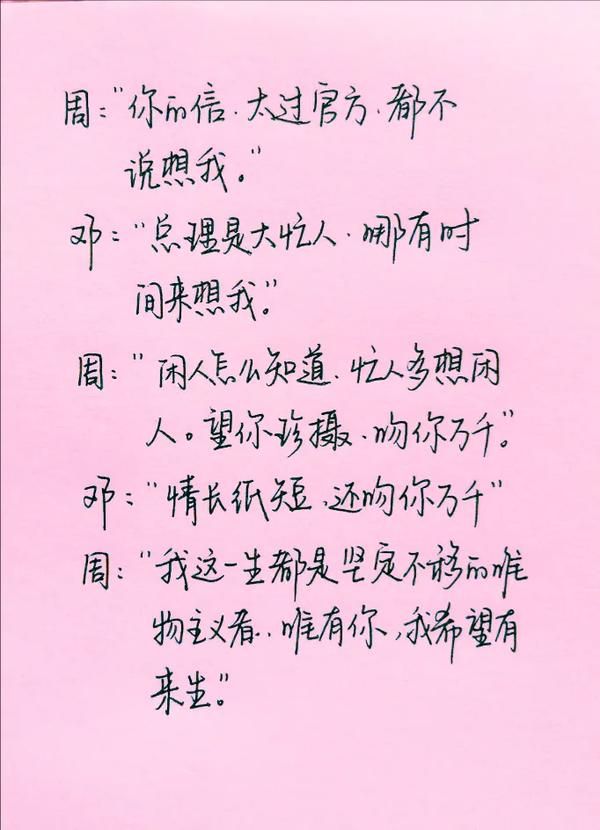 周:“你的信.太过官方.都不
说想我。”
邓:“总理是大忙人.哪有时
间来想我”。
周:“闲人怎么知道.忙人多想闲
人。望你珍摄.吻你万千”。
邓:“情长纸短,还吻你万千”
周:“我这一生都是坚定不移的唯
物主义者.唯有你,我希望有
来生”。